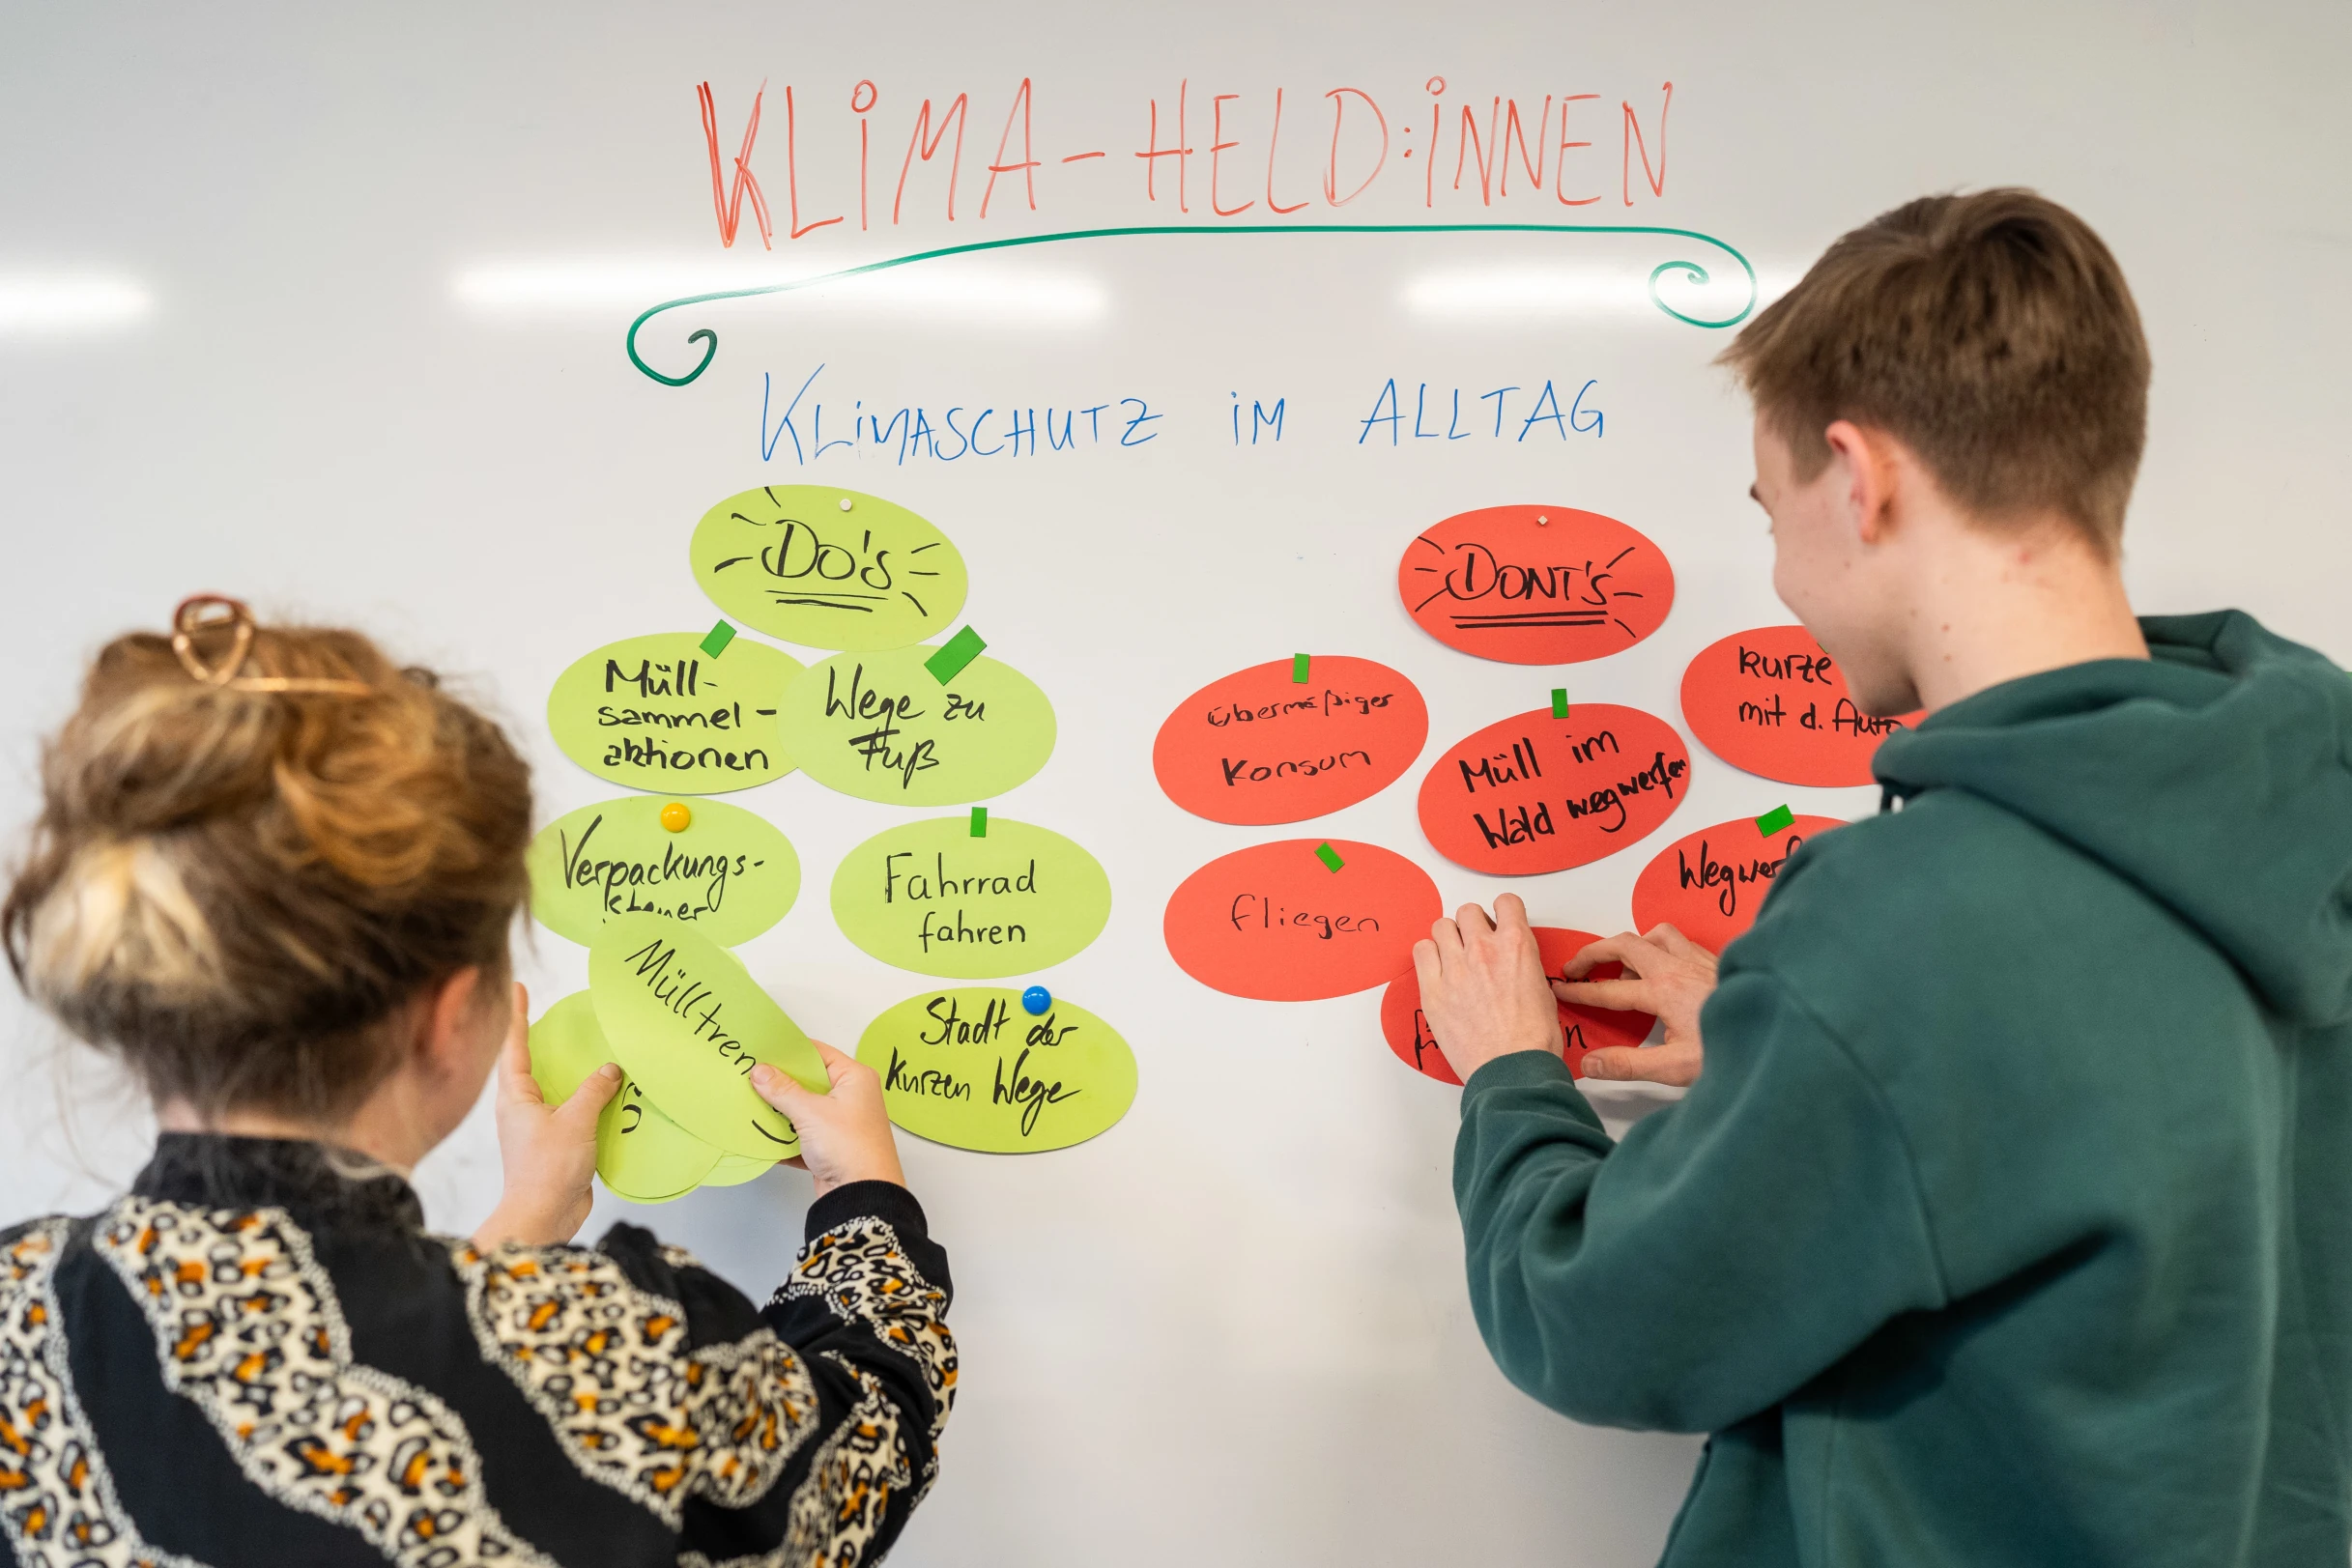 KLIMA-HELD:INNEN
KLIMASCHUTZ IM ALLTAG
Do's
Müll-
sammel-
aktionen
Wege zu
Fuß
Verpackungs-
Fahrrad
fahren
Mülltren
Stadt der
kurzen Wege
DONT'S
übermäßiger
Konsum
Müll im
Wald wegwerfen
kurze
mit d. Auto
Wegwerf
fliegen